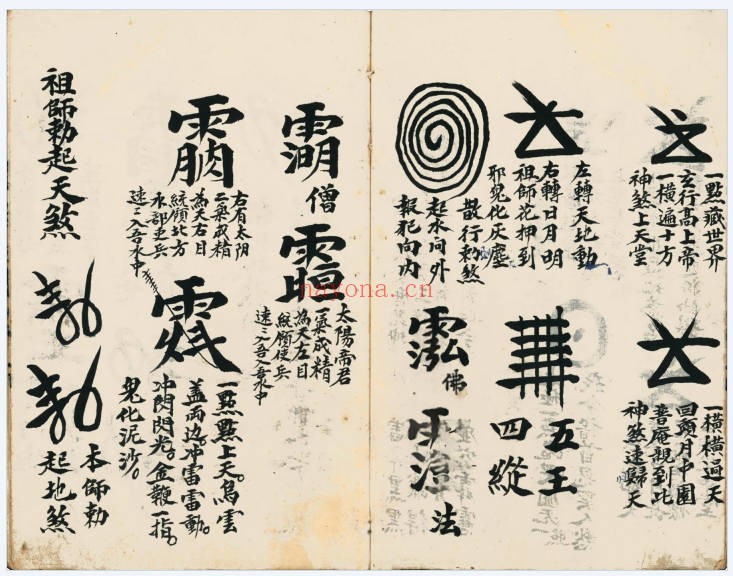 一點藏世界
玄行高上帝
一橫遍十方
神煞上天堂
一橫橫過天
回頭月中圓
普庵親到此
神煞速歸天
左轉天地動
右轉日月明
祖師花押到
邪鬼化灰塵
五王
四縱
散行勅煞
起水向外
報犯向內
佛
法
僧
太陽帝君
一氣成精
為天左目
統領使兵
右有太阴
二氣成精
為天右目
統領北方
水部吏兵
一點點上天。烏雲
蓋两边。冲雷雷動。
冲閃閃光。金鞭一指。
鬼化泥沙。
祖師勅起天煞
本師勅
起地煞
nayona.cn